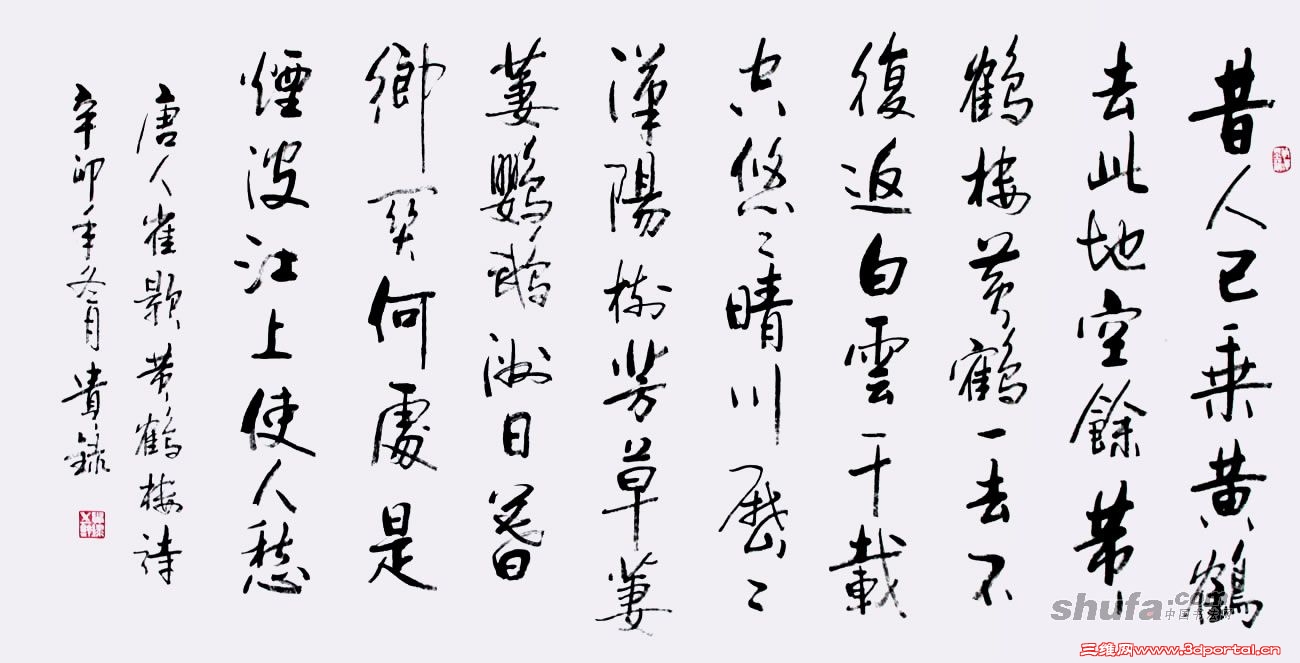 昔人已乘黄鶴
去此地空餘黄
鶴楼黄鶴一去不
復返白雲千載
空悠〻晴川歷〻
漢陽樹芳草萋
萋鸚鵡洲日暮
鄉関何處是
煙波江上使人愁
唐人崔顥黄鶴楼詩
辛卯年冬月貴錄
shufa.com
中国书法网
三维网www.3dportal.cn